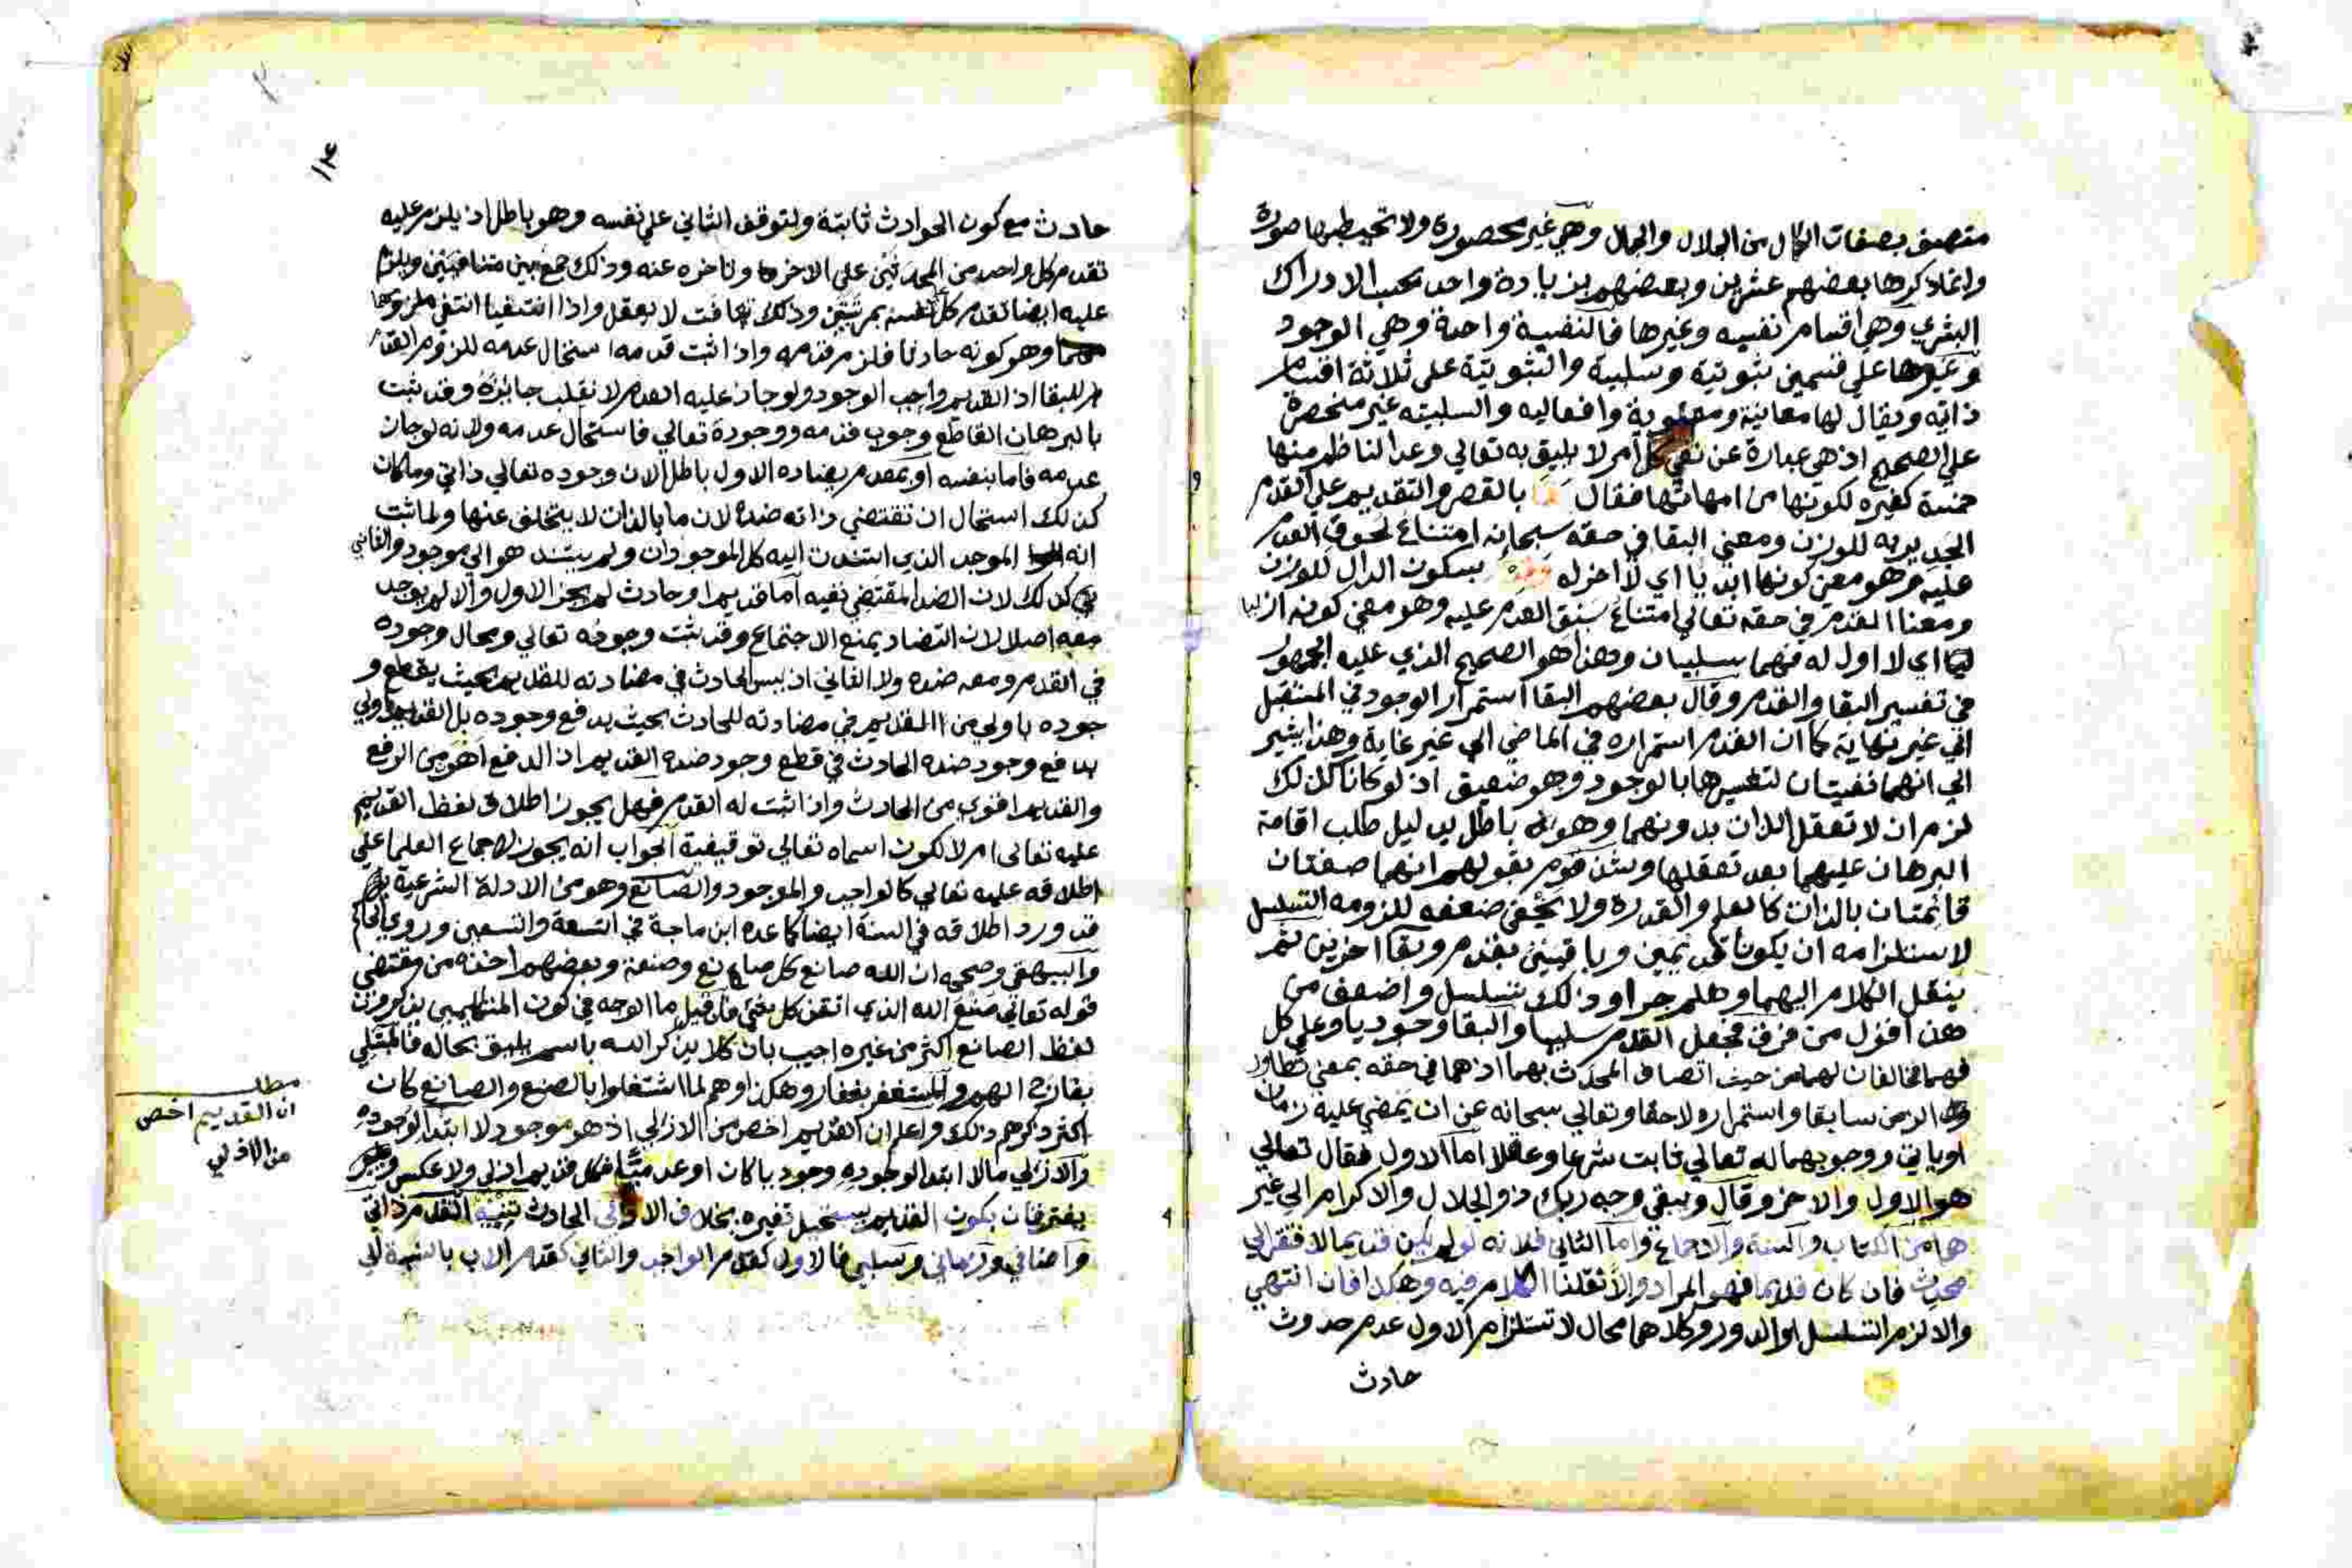 متصف بصفات الكمال من الجلال والجمال وهي غير محصورة ولا تحيط بها صورة
وانما ذكرها بعضهم عشرين وبعضهم بزيادة واحد بحسب الادراك
البشري وهي اقسام نفسيه وغيرها فالنفسية واحدة وهي الوجود
وغيرها على قسمين ثبوتية وسلبية والثبوتية على ثلاثة اقسام
ذاتيه ويقال لها معانية ومعنوية وافعاليه والسلبيته غير منحصرة
على الصحيح اذ هي عبارة عن نفي كل أمر لا يليق به تعالي وعد الناظم منها
خمسة كغيره لكونها من امهاتها فقال بالقصر والتقديم علي القدم
الجدير به للوزن ومعني البقا في حقه سبحانه امتناع لحوق العدم
عليه وهو معنى كونها ابديا اي لا اخر له بسكون الدال للوزن
ومعنا القدم في حقه تعالي امتناع سبق العدم عليه وهو معني كونه ازليا
اي لا اول له فهما سلبيان وهذا هو الصحيح الذي عليه الجمهور
في تفسير البقا والقدم وقال بعضهم البقا استمرار الوجود في المستقبل
الي غير نهاية كما ان القدم استمراره في الماضي الي غير غاية وهذا يشير
الي انهما نفسيتان لتفسيرها بالوجود وهو ضعيف اذ لو كانا كذلك
لزم ان لا تعقل الذات بدونهما وهو باطل بدليل طلب اقامة
البرهان عليهما بعد تعقلها وشذ قوم بقولهم انهما صفتان
قائمتان بالذات كالعلم والقدرة ولا يخفى ضعفه للزومه التسلسل
لاستلزامه ان يكونا قديمين وباقيين بقدم وبقا اخرين ثم
ينقل الكلام اليهما وهلم جرا وذلك تسلسل واضعف من
هذا قول من فرق فجعل القدم سلبيا والبقا وجوديا وعلي كل
فهما مخالفان لهما من حيث اتصاف المحدث بهما اذ هما في حقه بمعني تطاول
الزمن سابقا واستمراره لاحقا وتعالي سبحانه عن ان يمضي عليه زمان
او ياتي ووجوبهما له تعالي ثابت شرعا وعقلا اما الاول فقال تعالي
هو الاول والاخر وقال ويبقى وجه ربك ذو الجلال والاكرام الي غير
هما من الكتاب والسنة والاجماع واما الثاني فلانه لو لم يكن قديما لافتقر الي
محدث فان كان قديما فهو المراد والا نقلنا الكلام فيه وهكذا فان انتهي
والا لزم التسلسل او الدور وكلاهما محال لاستلزام الاول عدم حدوث
حادث
١٢٤
حادث مع كون الحوادث ثابتة ولتوقف الثاني علي نفسه وهو باطل اذ يلزم عليه
تقدم كل واحد من المحدثين علي الاخر وتاخره عنه وذلك جمع بين متنافيين ويلزم
عليه ايضا تقدم كل نفسه بمرتبتين وذلك تهافت لا يعقل واذا انتفيا انتفي ملزومهما
وهو كونه حادثا فلزم قدمه واذا ثبت قدمه استحال عدمه للزوم القدم
للبقا اذ القديم واجب الوجود ولو جاز عليه العدم لانقلب جائزه وقد ثبت
بالبرهان القاطع وجوب قدمه ووجوده تعالي فاستحال عدمه ولانه لو جاز
عدمه فاما بنفسه او بمعدم يضاده الاول باطل لان وجوده تعالي ذاتي وما كان
كذلك استحال ان تقتضي ذاته ضده لان ما بالذات لا يتخلف عنها ولما ثبت
انه الموجد الذي استندت اليه كل الموجودات ولم يستند هو الي موجود والثاني
كذلك لان الضد المقتضي نفيه اما قديم او حادث لم يجز الاول والا لم يوجد
معه اصلا لان التضاد يمنع الاجتماع وقد ثبت وجوده تعالي ومحال وجوده
في القدم ومعه ضده ولا الثاني اذ ليس الحادث في مضادته للقديم بحيث يقطع و
جوده باولي من القديم في مضادته للحادث بحيث يدفع وجوده بل القديم اولي
بدفع وجود ضده الحادث في قطع وجود ضده القديم اذ الدفع اهون من الرفع
والقديم اقوي من الحادث واذا ثبت له القدم فهل يجوز اطلاق لفظ القديم
عليه تعالى ام لا لكون اسماه تعالي توقيفية الجواب انه يجوز لاجماع العلما علي
اطلاقه عليه تعالي كالواجب والموجود والصانع وهو من الادلة الشرعية بل
قد ورد اطلاقه في السنة ايضا كما عده ابن ماجة في التسعة والتسعين وروي الحاكم
والبيهقي وصححه ان الله صانع كل صانع وصنعة وبعضهم اخذه من مقتضي
قوله تعالي صنع الله الذي اتقن كل شئ فان قيل ما الوجه في كون المتكلمين يذكرون
لفظ الصانع اكثر من غيره اجيب بان كلا يذكر الله باسم يليق بحاله فالمبتلي
بفارج الهم والمستغفر بغفار وهكذا وهم لما اشتغلوا بالصنع والصانع كان
اكثر ذكرهم ذلك واعلم ان القديم اخص من الازلي اذ هو موجود لا ابتدا لوجوده
والازلي مالا ابتدا لوجوده وجوديا كان او عدميا فكل قديم ازلي ولا عكس
يفترقان بكون القديم يستحيل تغيره بخلاف الازلي الحادث تنبيه القدم ذاتي
واضافي وزماني وسلبي فالاول كقدم الواجد والثاني كقدم الاب بالنسبة لل
مطلب
ان القديم اخص
من الازلي